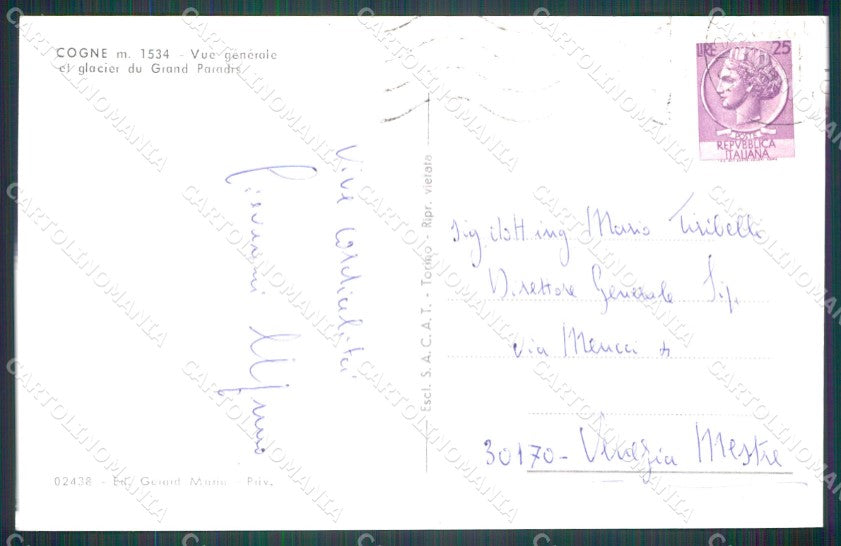 COGNE m. 1534 - Vue générale
et glacier du Grand Paradis
LIRE 25
POSTE
REPVBBLICA
ITALIANA
Vive cordialità
Giovanni
Escl. S.A.C.A.T. - Torino - Ripr. vietata
Sig. dott. ing Mario Tiribelli
Direttore Generale Sip.
Via Meucci
30170 - Venezia Mestre
02438 - Ed. Gérard Mario - Priv.
CARTOLINOMANIA